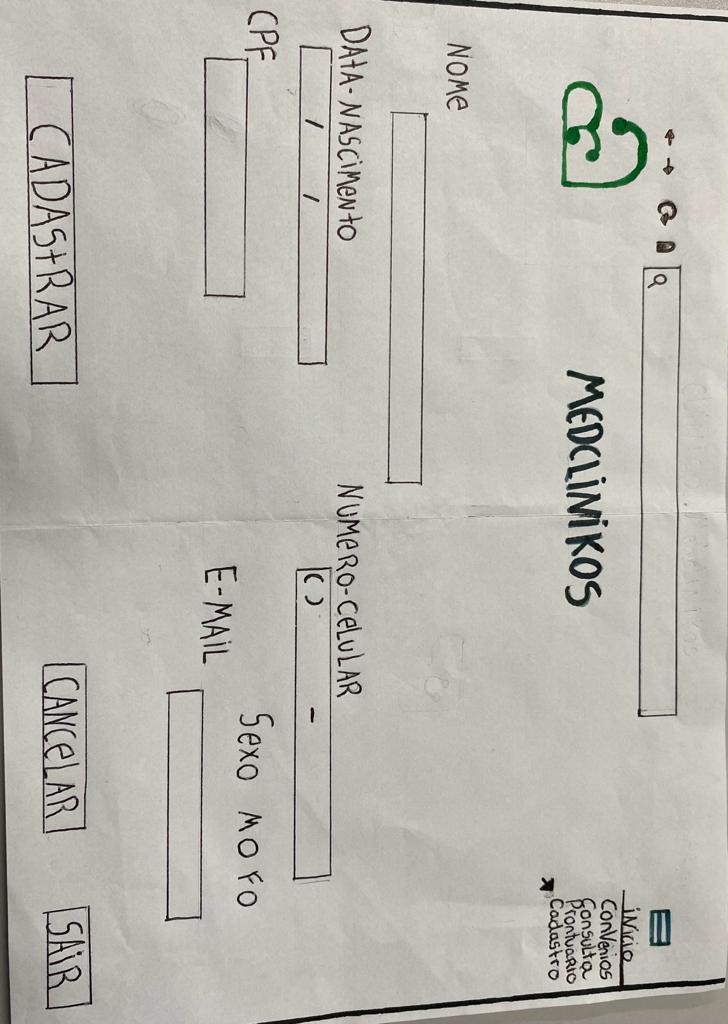 MEDCLINIKOS
INICIO
CONVÊNIOS
Consulta
Prontuario
Cadastro
NOME
DATA-NASCIMENTO
/ /
NUMERO-CELULAR
( ) -
CPF
Sexo M O F O
E-MAIL
CADAStRAR
CANCELAR
SAIR